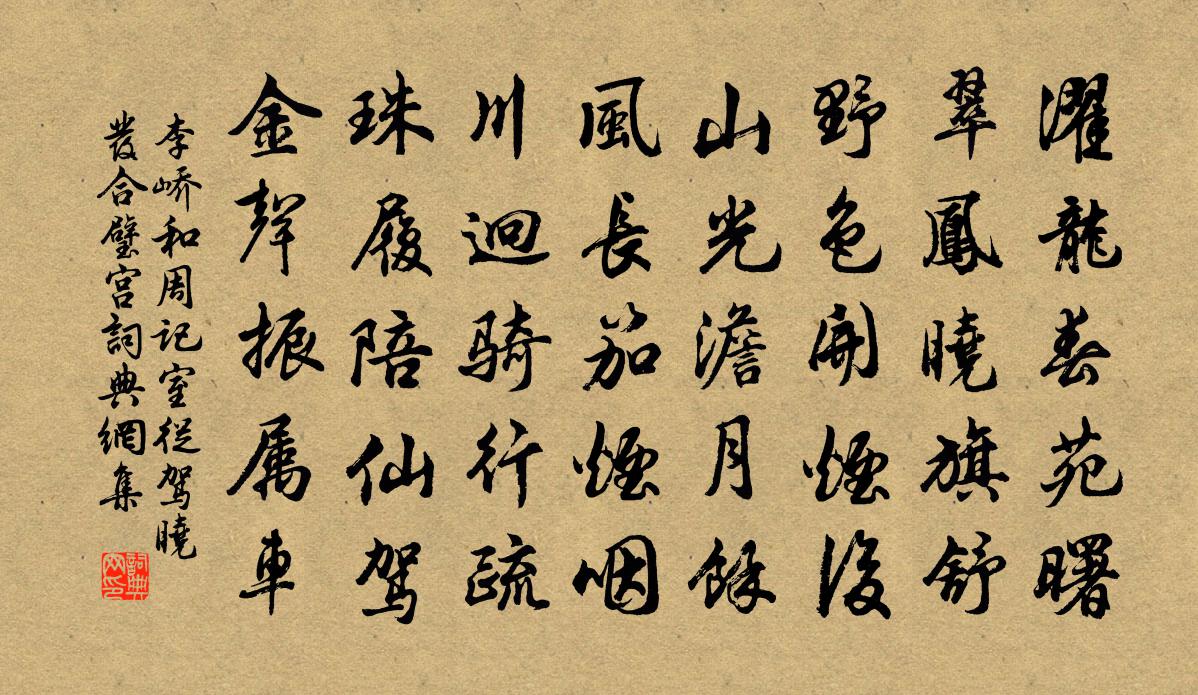 濯龍春苑曙
翠鳳曉旗舒
野色開煙後
山光澹月餘
風長笳煙咽
川迥騎行疏
珠履陪仙駕
金聲振屬車
李嶠和周記室從駕曉
發合璧宮詞典網集
詞典網印